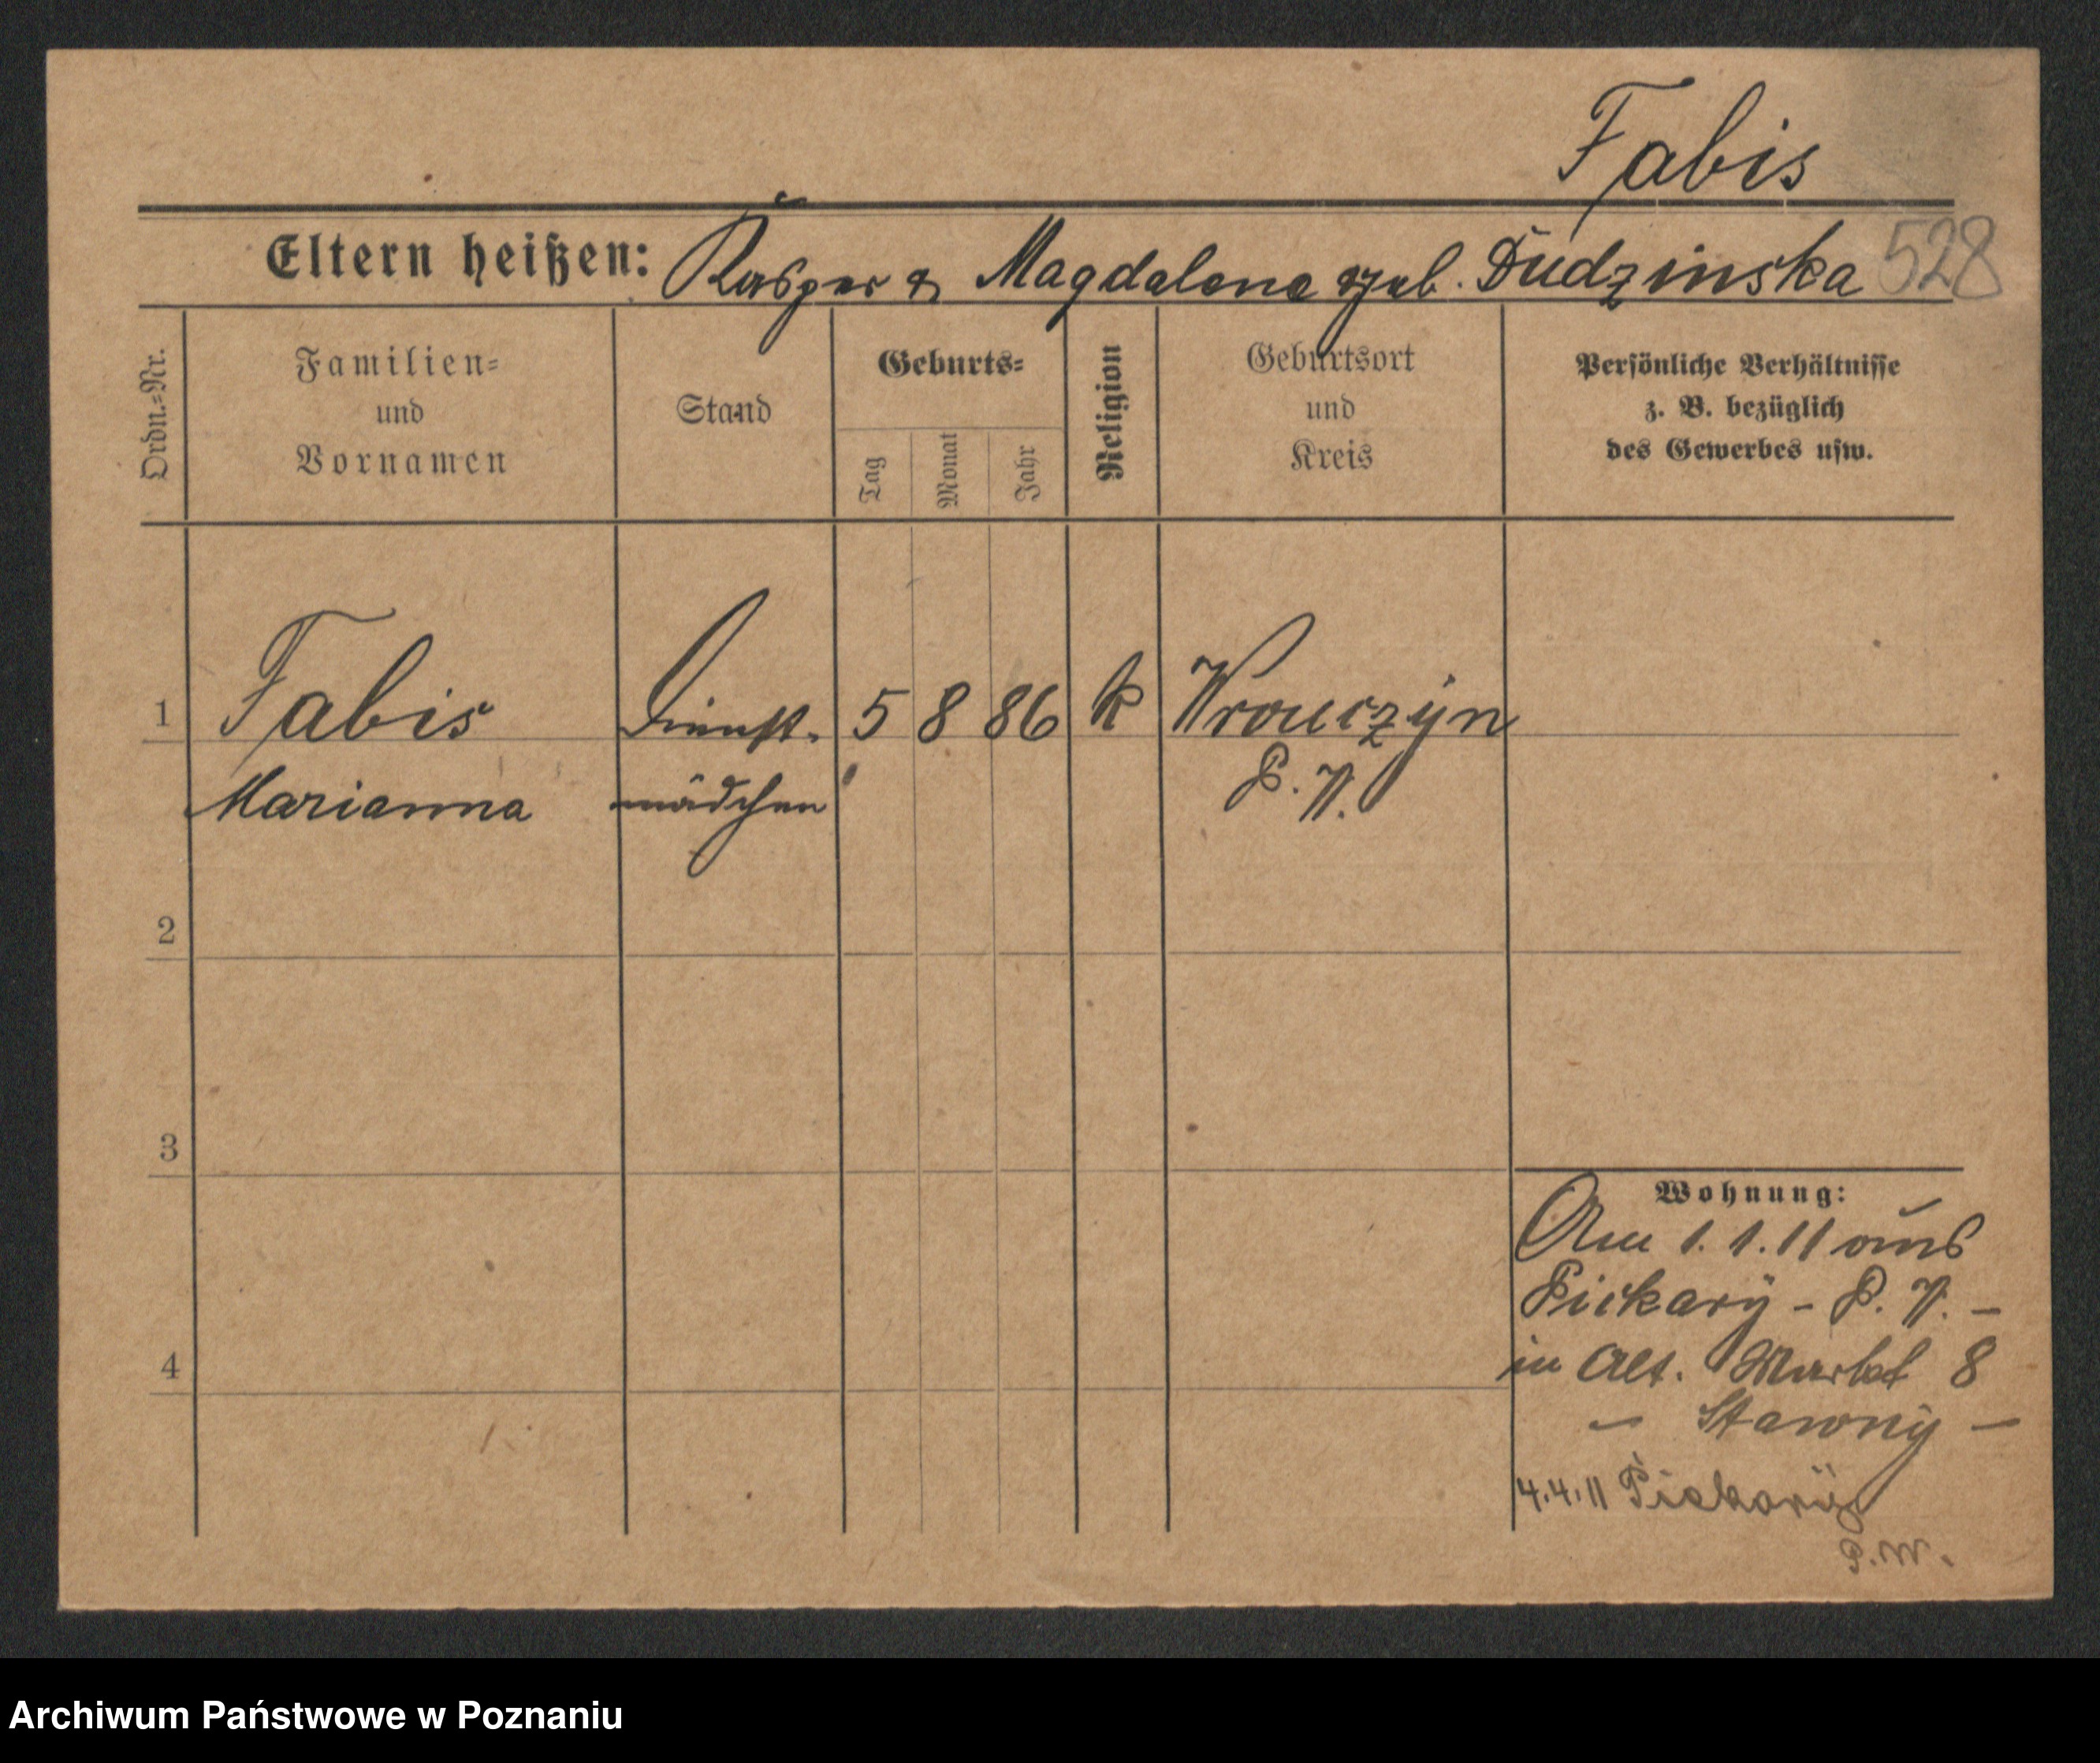 Fabis
Eltern heißen: Kasper & Magdalena geb. Dudzinska 528
Ordn.-Nr.
Familien-
und
Vornamen
Stand
Geburts-
Tag
Monat
Jahr
Religion
Geburtsort
und
Kreis
Persönliche Verhältnisse
z. B. bezüglich
des Gewerbes usw.
1 Fabis Dienst- 5 8 86 k Wronczyn
Marianna mädchen P. W.
2
3
4
Wohnung:
Am 1.1.11 aus
Piekary - P. W. -
in Alt. Markt 8
- Stawny -
4.4.11 Piekary
P. W.
Archiwum Państwowe w Poznaniu